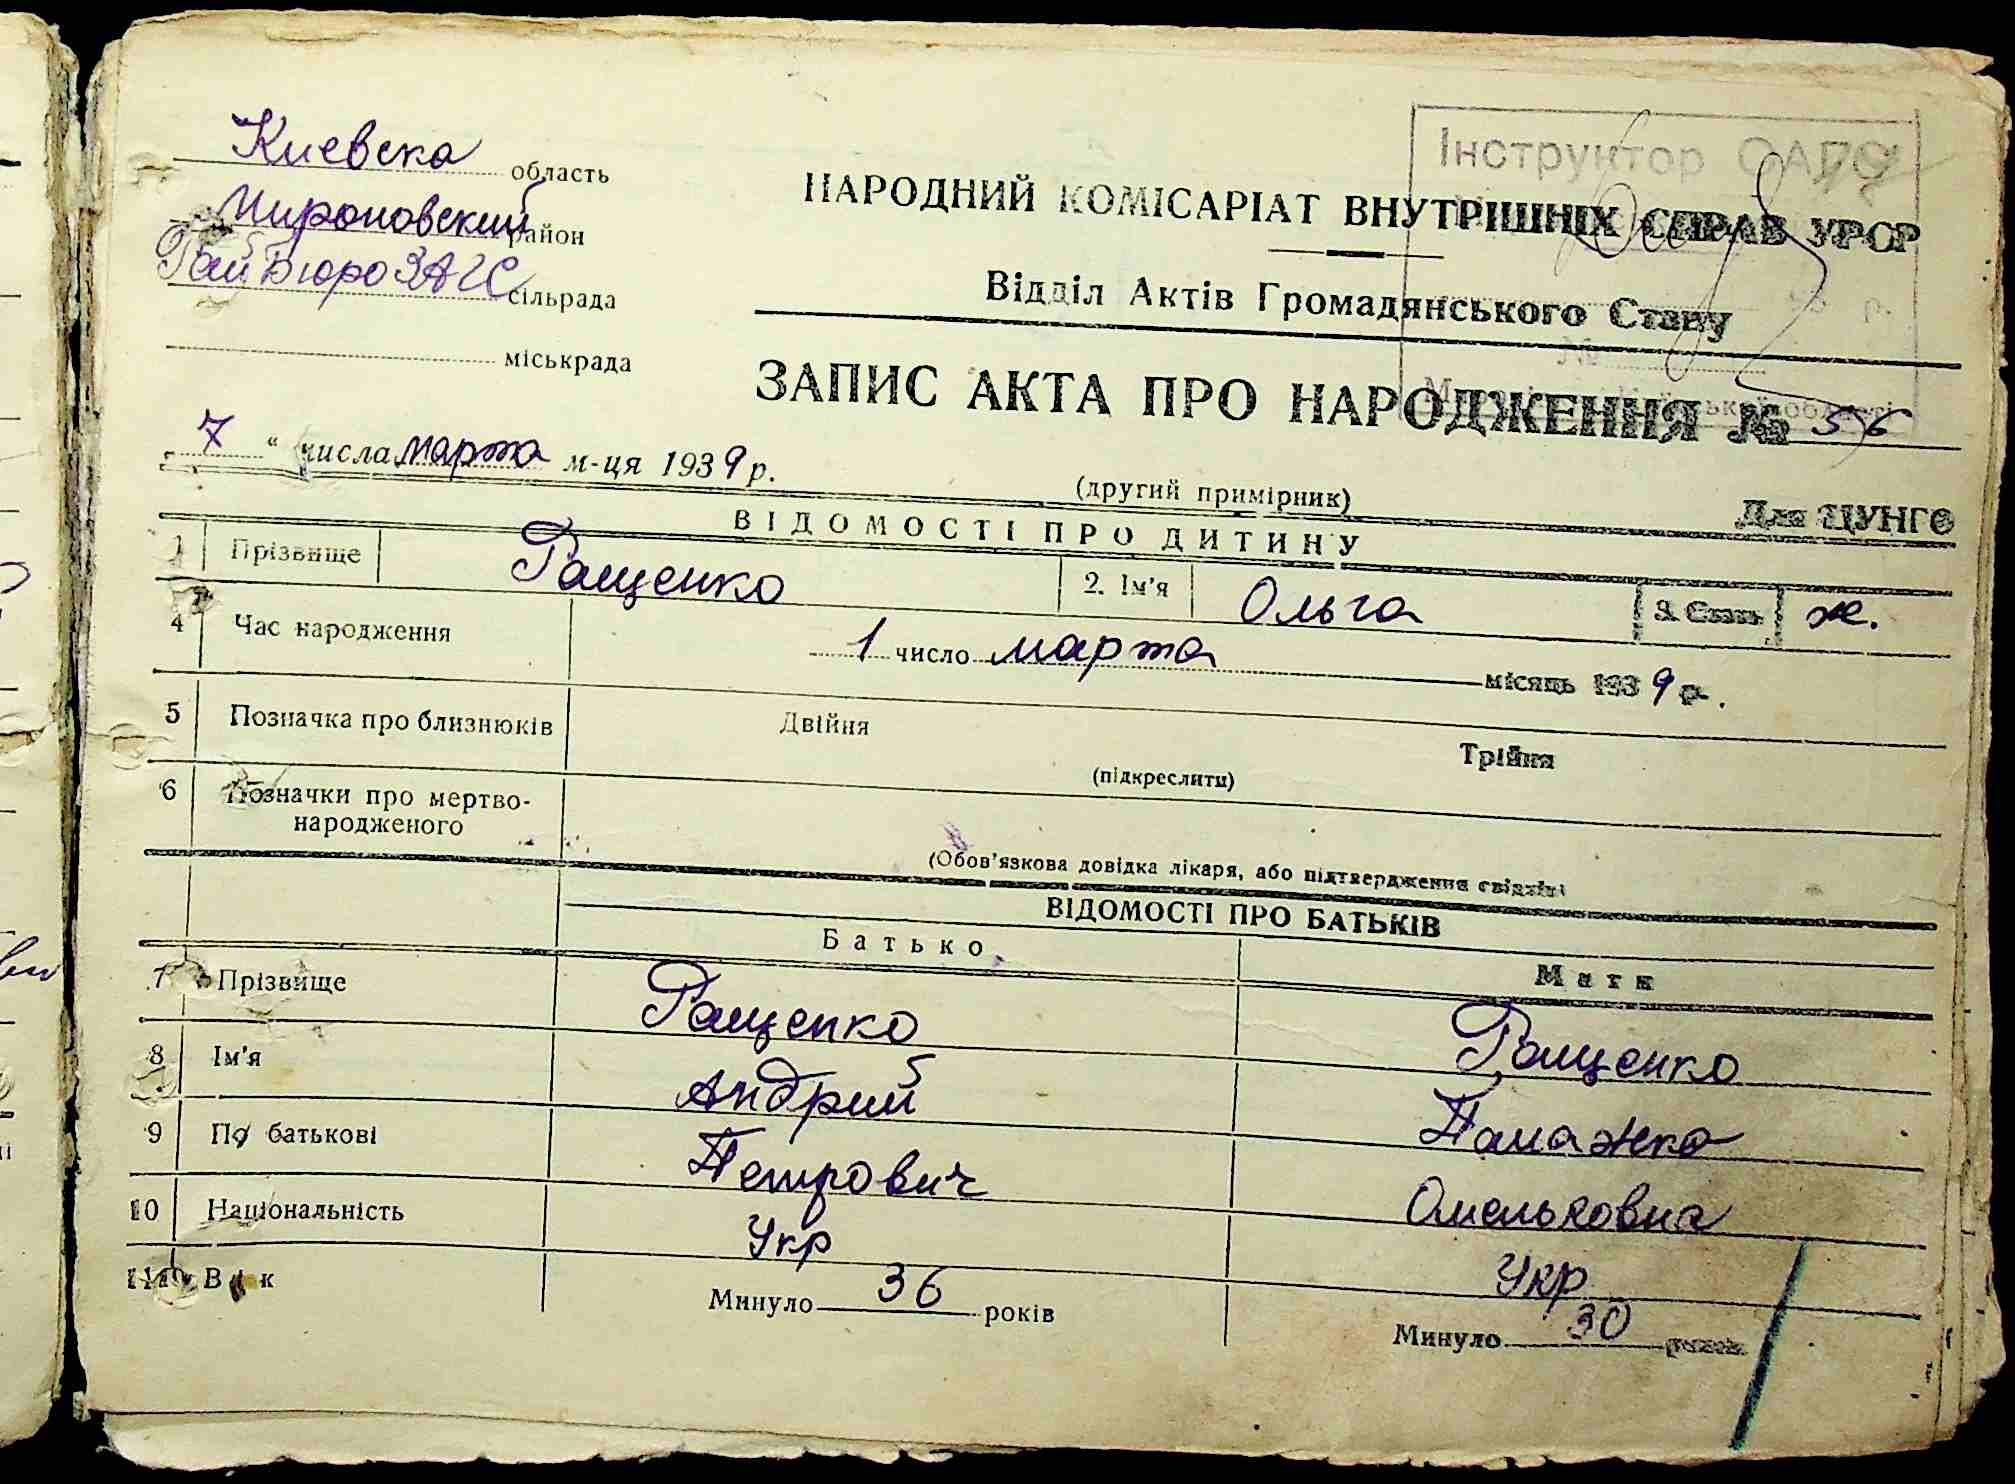 Киевска область
Мироновский район
РайБюро ЗАГС сільрада
міськрада
Інструктор ОАГС
НАРОДНИЙ КОМІСАРІАТ ВНУТРІШНІХ СПРАВ УРСР
Відділ Актів Громадянського Стану
ЗАПИС АКТА ПРО НАРОДЖЕННЯ № 56
7 " числа марта м-ця 1939 р.
(другий примірник)
Для ЦУНГО
ВІДОМОСТІ ПРО ДИТИНУ
1 Прізвище Ращенко 2. Ім'я Ольга 3. Стать ж.
4 Час народження 1 число марта місяць 1939 р.
5 Позначка про близнюків Двійня Трійня
(підкреслити)
6 Позначки про мертво-
народженого
(Обов'язкова довідка лікаря, або підтвердження свідків)
ВІДОМОСТІ ПРО БАТЬКІВ
Батько Мати
7 Прізвище Ращенко Ращенко
8 Ім'я Андрий
9 По батькові Петрович Омельковна
10 Національність Укр Укр
11 Вік Минуло 36 років Минуло 30 років